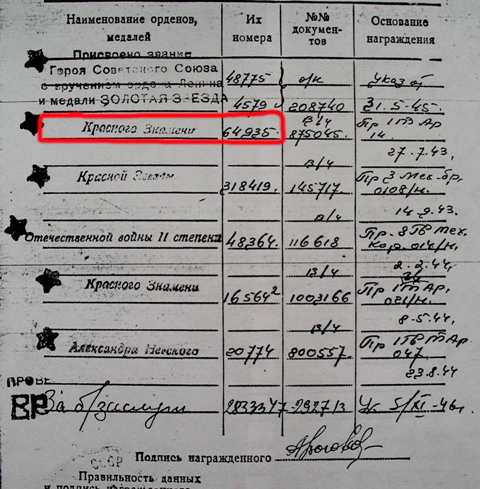 Наименование орденов, Их №№ Основание
медалей номера докумен- награждения
тов
Присвоено звание
Героя Советского Союза 48775 б/н Указ
с вручением ордена Ленина
и медали ЗОЛОТАЯ ЗВЕЗДА 4579 208740 31.5-45.
Красного Знамени 64935. в/ч 875045. Пр 1 ТВ АР
14.
27.7.43,
Красной Звезды 318419. в/ч 145717. Пр 3 мех.бр,
0108/н.
14.9.43.
Отечественной войны II степени 48364. в/ч 116618 Пр. 8 ГВ мех.
Кор. 014/н.
2.2.44,
Красного Знамени 16564² в/ч 1003166 Пр 1 ТАр.
021/н.
8.5.44,
Александра Невского 20774 в/ч 800557. Пр 1 ГВ Т Ар
047.
23.8.44
ПРОВЕ
ВР За б/заслуги 2833347 292713 Ук 5/XI-46г.
Подпись награжденного
СССР
Правильность данных
и подпись награжденного